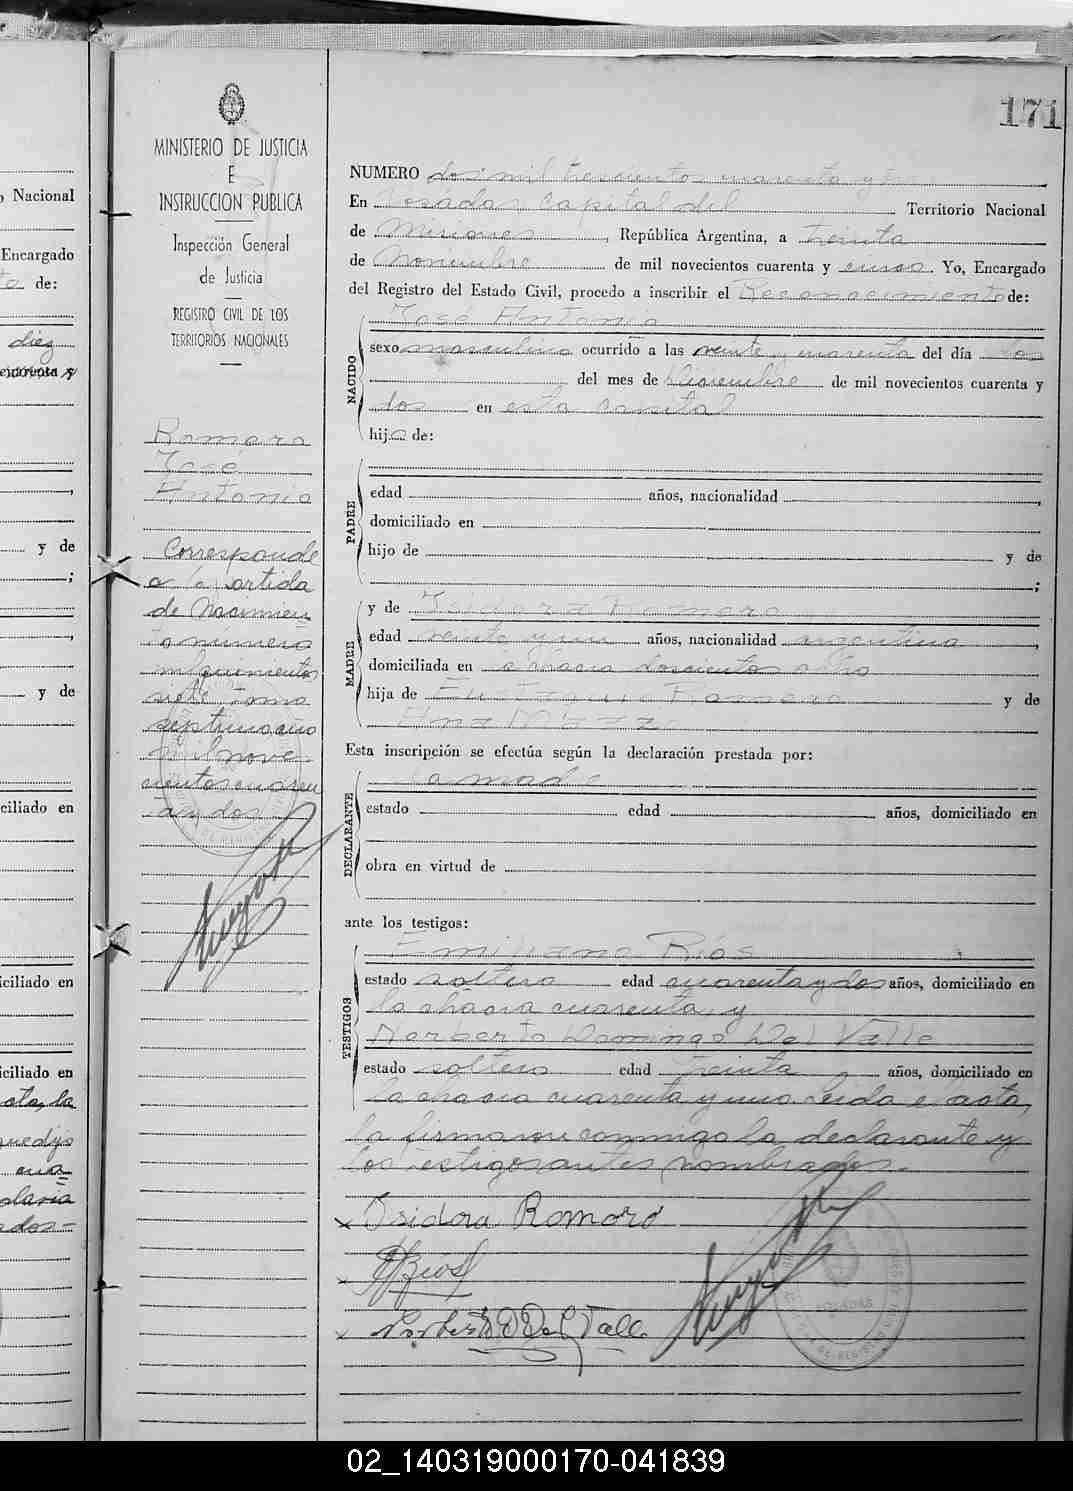 171
MINISTERIO DE JUSTICIA
E
INSTRUCCION PUBLICA
Inspección General
de Justicia
REGISTRO CIVIL DE LOS
TERRITORIOS NACIONALES
Romero
José
Antonio
Corresponde
a la partida
de Nacimien
to número
mil quinientos
siete tomo
septimo año
mil nove
cientos cuaren
ta y dos
NUMERO dos mil trescientos cuarenta y
En Posadas Capital del Territorio Nacional
de Misiones, República Argentina, a treinta
de Noviembre de mil novecientos cuarenta y cinco. Yo, Encargado
del Registro del Estado Civil, procedo a inscribir el Reconocimiento de:
NACIDO
José Antonio
sexo masculino ocurrido a las veinte y cuarenta del día dos
del mes de Diciembre de mil novecientos cuarenta y
dos en esta capital
hijo de:
PADRE
edad años, nacionalidad
domiciliado en
hijo de y de
;
MADRE
y de Isidora Romero
edad veinte y un años, nacionalidad argentina,
domiciliada en la chacra doscientos ocho
hija de Romero y de
Ana
Esta inscripción se efectúa según la declaración prestada por:
DECLARANTE
la madre
estado edad años, domiciliado en
obra en virtud de
ante los testigos:
TESTIGOS
Emiliano Ríos
estado soltero edad cuarenta y dos años, domiciliado en
la chacra cuarenta, y
Norberto Domingo Del Valle
estado soltero edad treinta años, domiciliado en
la chacra cuarenta y uno Leida el acta,
la firmaron conmigo la declarante y
los testigos antes nombrados.-
x Isidora Romero
Ríos
x Norberto D Del Valle
POSADAS
o Nacional
Encargado
to de:
diez
y de
;
y de
ciliado en
iciliado en
iciliado en
acta, la
que dijo
02_140319000170-041839